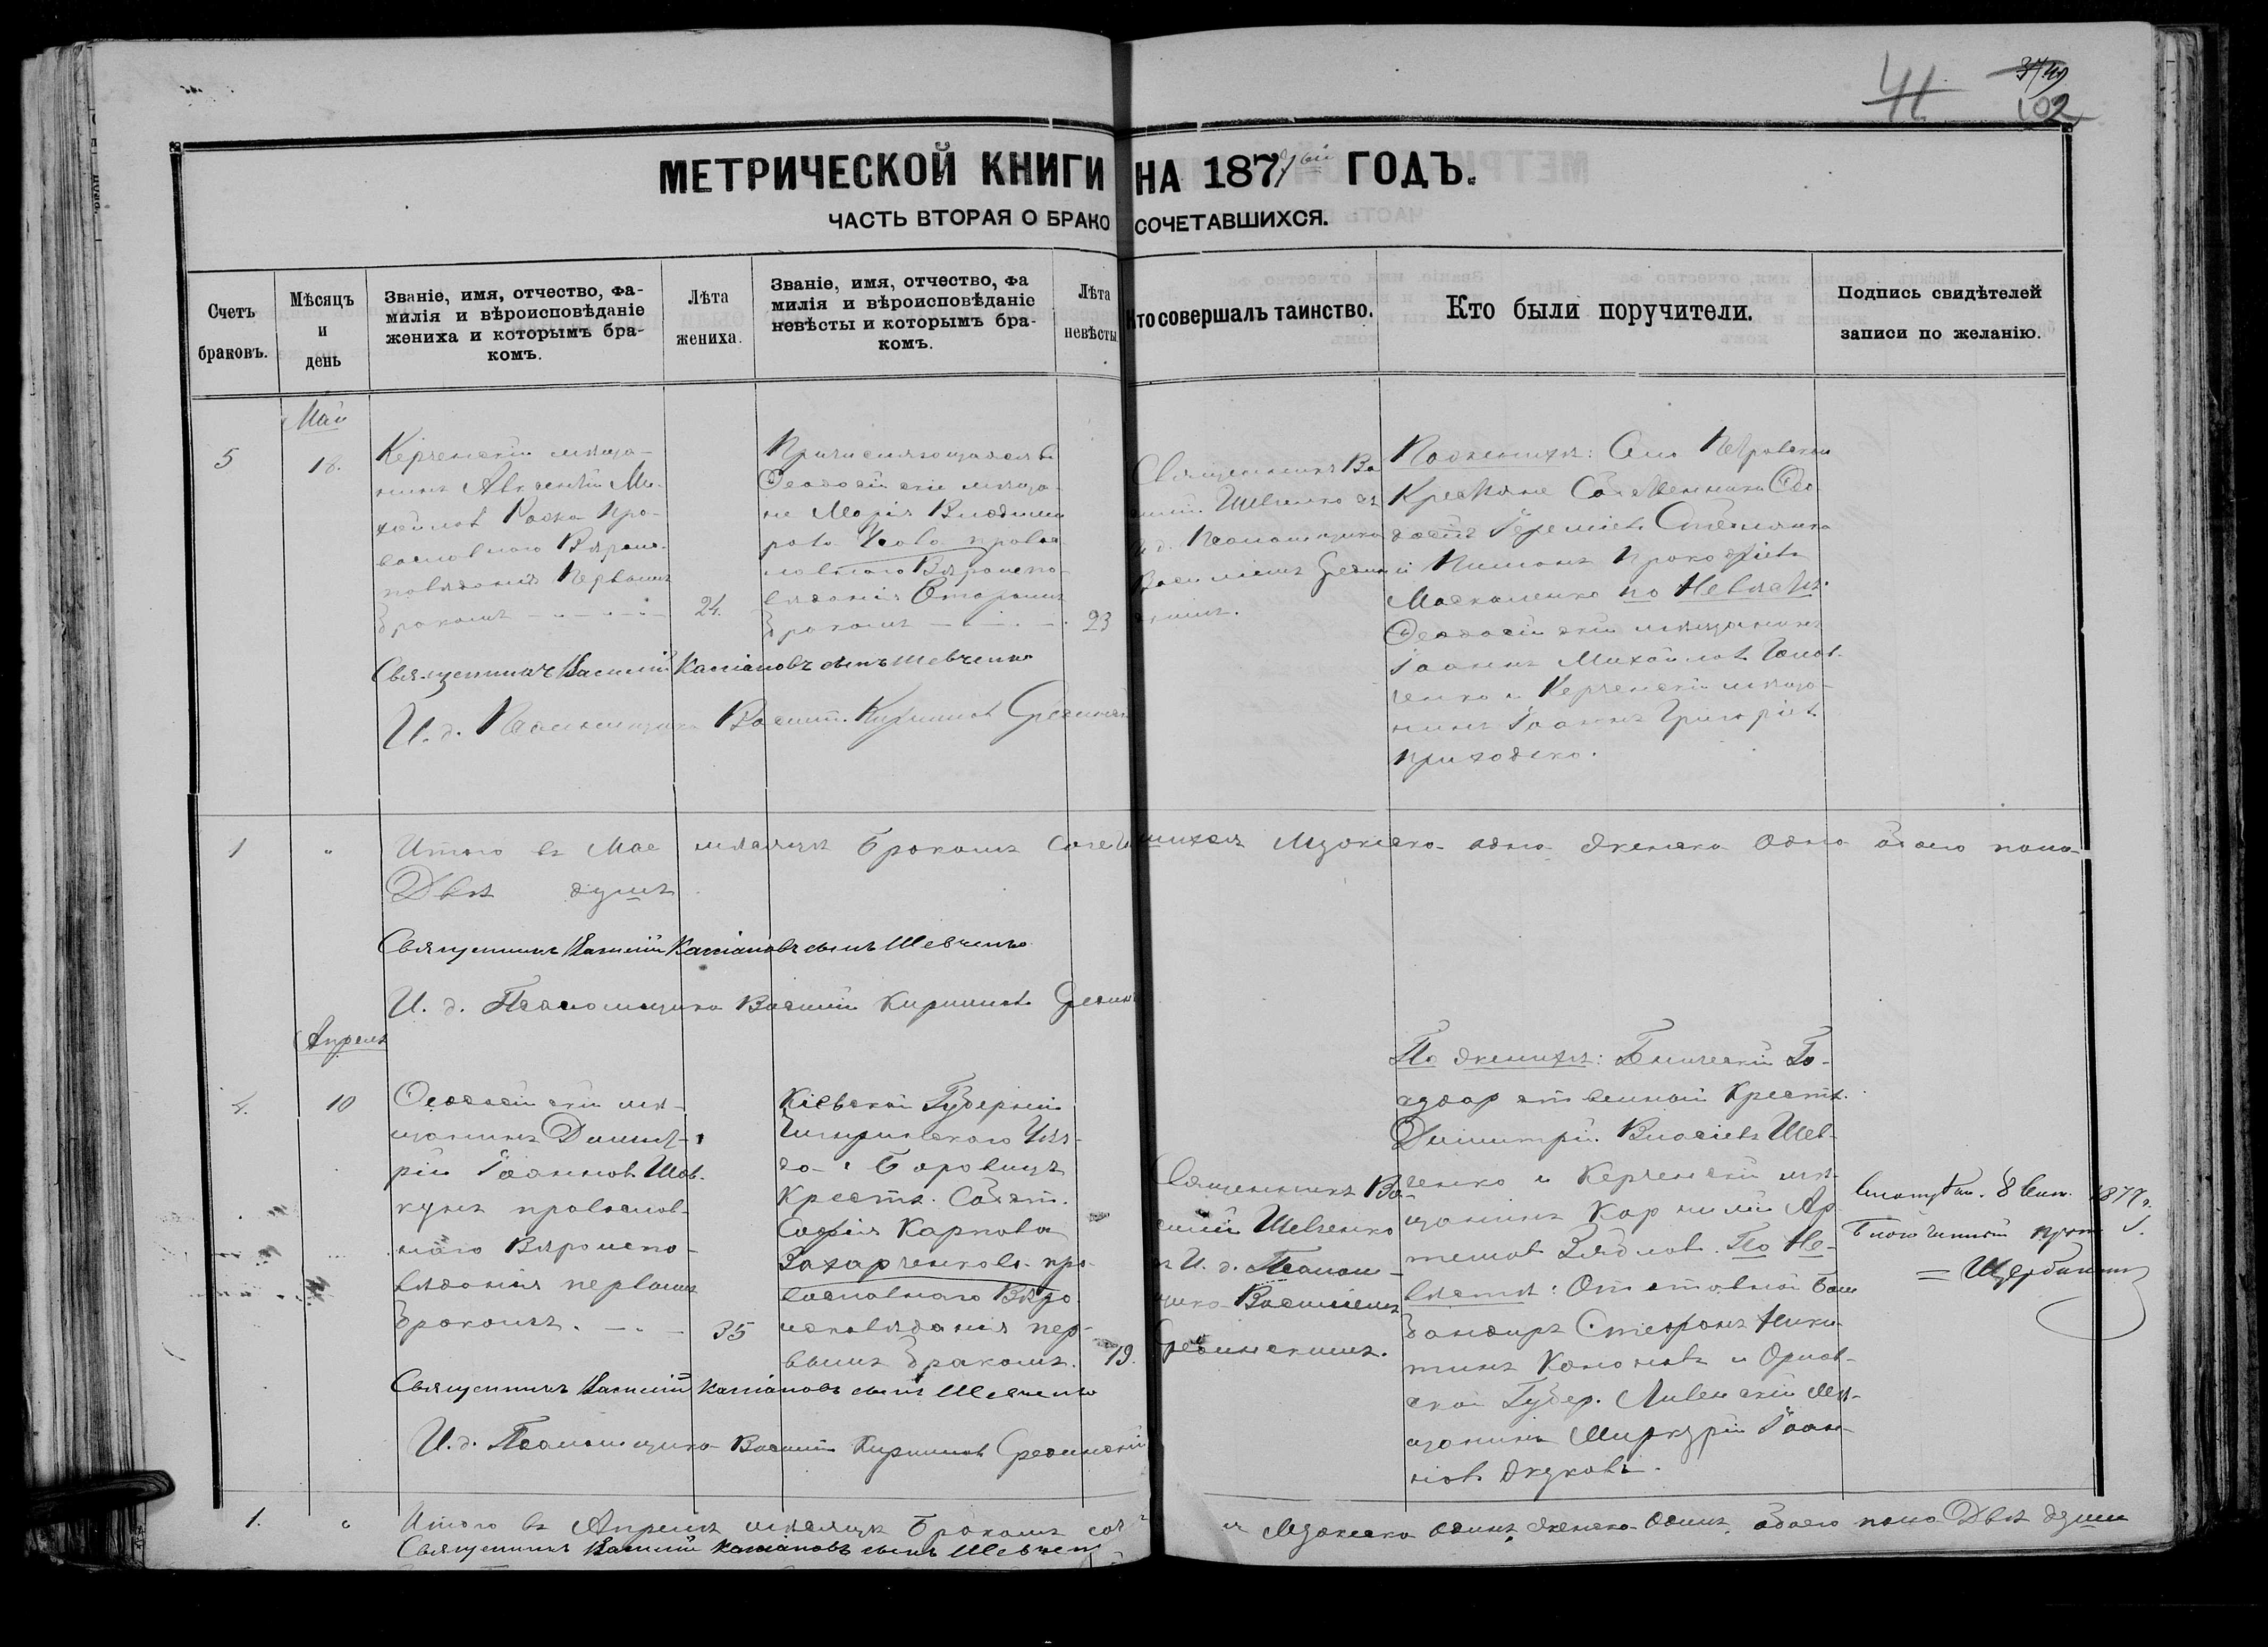 41
102
МЕТРИЧЕСКОЙ КНИГИ НА 187 ГОДЪ.
ЧАСТЬ ВТОРАЯ О БРАКОСОЧЕТАВШИХСЯ.
Счетъ браковъ.
Мѣсяцъ и день
Званіе, имя, отчество, фа-
милія и вѣроисповѣданіе
жениха и которымъ бра-
комъ.
Лѣта жениха.
Званіе, имя, отчество, фа
милія и вѣроисповѣданіе
невѣсты и которымъ бра-
комъ.
Лѣта невѣсты
Кто совершалъ таинство.
Кто были поручители.
Подпись свидѣтелей
записи по желанію.
Май
5
18.
Керченскій мѣща-
нинъ Авксентій Ми-
хайловъ пра-
вославнаго Вѣроис-
повѣданія первымъ
бракомъ
24.
Причисляющаяся въ
Ѳеодосійскіе мѣща-
не Марія Владими
рова правос
лавнаго Вѣроиспо-
вѣданія Вторымъ
бракомъ
23
Священникъ Ва
силій Шевченко съ
И. д. Псаломщика
Василіемъ
По женихѣ: Села Петровки
Крестьяне Собственники Ѳео
досій Іереміевъ
и Пименъ Прокофіевъ
Москаленко по Невѣстѣ:
Ѳеодосійскій мѣщанинъ
Іоаннъ Михайловъ
ченко и Керченскій мѣща-
нинъ Іоаннъ Григоріевъ
Приходько.
Священникъ Василій Кассіановъ сынъ Шевченко
И. д. Псаломщика Василій Кирилловъ
1
"
Итого въ Мае мѣсяцѣ бракомъ сочетавшихся Мужеска одно женска одно обоего пола
Двѣ души
Священникъ Василій Кассіановъ сынъ Шевченко
И. д. Псаломщика Василій Кирилловъ
Апрель
4.
10
Ѳеодосійскій мѣ-
щанинъ Димит-
рій Іоанновъ Шов-
кунъ православ-
наго Вѣроиспо-
вѣданія первымъ
бракомъ.
35
Кіевской Губерніи
Чигиринскаго Уѣз-
да с. Боровицѣ
Крест. Собст.
Софія Карпова
Захарченкова пра-
вославнаго Вѣро
исповѣданія пер-
вымъ бракомъ.
19.
Священникъ Ва-
силій Шевченко
съ И. д. Псалом-
щика Василіемъ
Срединскимъ.
По женихѣ: Еническій Го-
сударственной Крестъ.
Димитрій Власіевъ Шев-
ченко и Керченскій мѣ-
щанинъ Корнилій Ар
темовъ По Не-
вѣстѣ: Отставной Бом
бандиръ Стефанъ Ники-
тинъ Кононовъ и Орлов-
ской Губер. Ливенскій Мѣ-
щанинъ Меркурій Іоан-
новъ Жуковъ.
8 1877 г.
Благочинный прот.
= Щербина
Священникъ Василій Кассіановъ сынъ Шевченко
И. д. Псаломщика Василій Кирилловъ Срединскій
1.
"
Итого въ Апрелѣ мѣсяцѣ бракомъ Мужеска одинъ женска одинъ обоего пола Двѣ души
Священникъ Василій Кассіановъ сынъ Шевченк